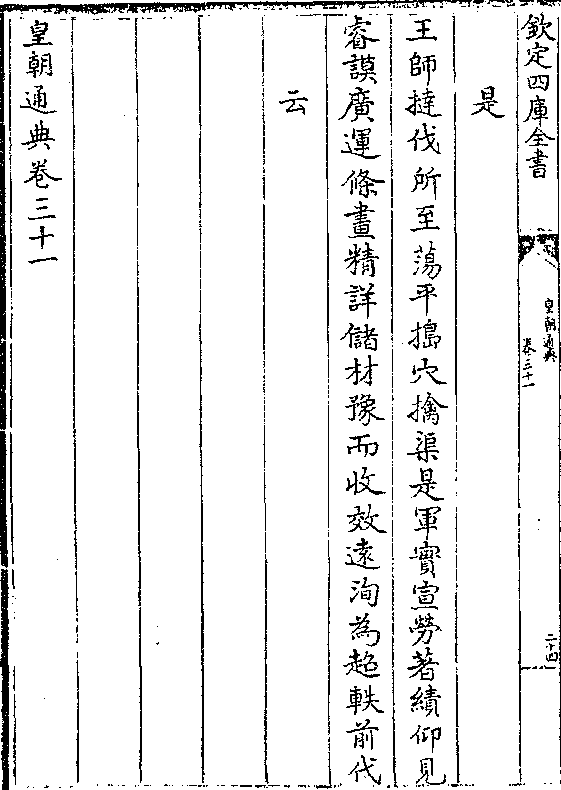 欽定四庫全書
皇朝通典
卷三十一
二十四
是
王師撻伐所至蕩平搗穴擒渠是軍實宣勞著績仰見
睿謨廣運條畫精詳儲材豫而收效遠洵為超軼前代
云
皇朝通典卷三十一